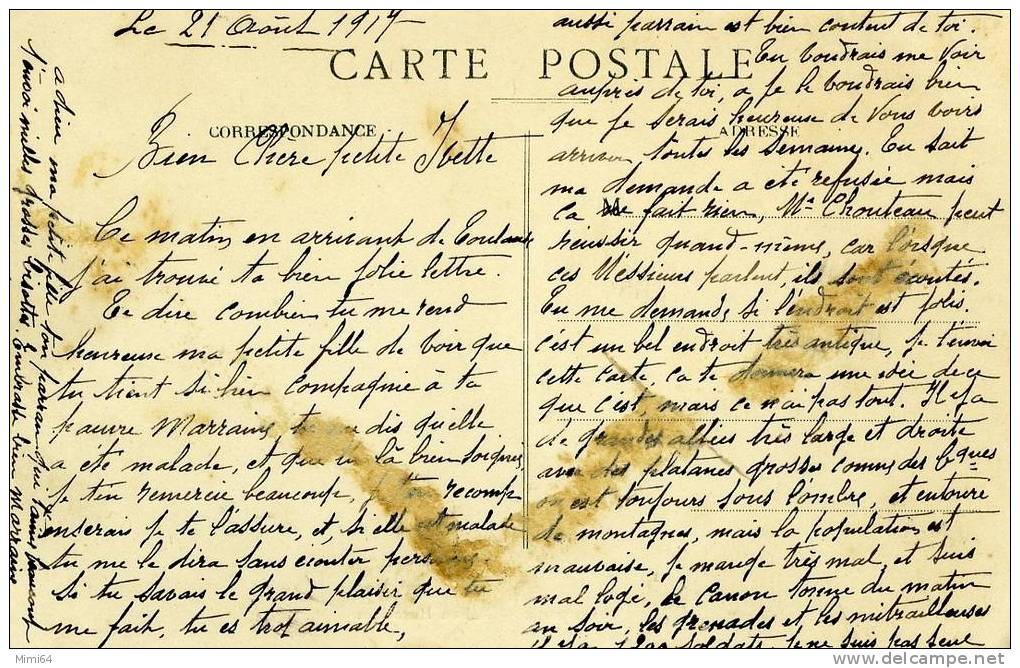 Le 21 Août 1917
CARTE POSTALE
CORRESPONDANCE
ADRESSE
Bien Chère petite Ivette
Ce matin en arrivant de
j'ai trouvé ta bien jolie lettre.
Te dire combien tu me rend
heureuse ma petite fille de voir que
tu tient si bien compagnie à ta
pauvre Marraine, tu me dis qu'elle
a été malade, et que tu l'à bien soignée,
je t'en remercie beaucoup, je t'en recomp
enserais je te l'assure, et, si elle est malade
tu me le dira sans écouter personne.
si tu savais le grand plaisir que tu
me fait, tu es trot aimable,
aussi parrain est bien content de toi.
Tu voudrais me voir
auprès de toi, a je le voudrais bien
que je serais heureuse de vous voirs
arriver, toutes les semaines. Tu sait
ma demande a été refusée mais
ca ne fait rien, Mr Chouteau peut
réussir quand-même, car lorsque
ces Messieurs parlent, ils sont écoutés.
Tu me demande si l'endroit est jolis
c'est un bel endroit très antique, je t'envoi
cette carte, ca te donnera une idée de ce
que c'est, mais ce n'ai pas tout. Il y a
de grandes allées très large et droite
avec des platanes grosses comme des bques
on est toujours sous l'ombre, et entouré
de montagnes, mais la population est
mauvaise, je mange très mal, et suis
mal logé, le canon tonne du matin
au soir, les grenades et les mitrailleuses
il y a 1200 soldats, je ne suis pas seul
adieu ma petite fille ton parrain qui t'aime
t'envoi milles grosses bisettes & Embrasse bien Marraine
Mimi64
delcampe.net